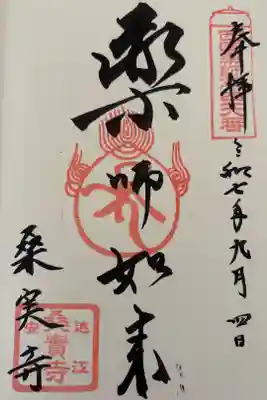 奉拝
令和七年九月四日
薬師如来
桑実寺
近江
桑實寺